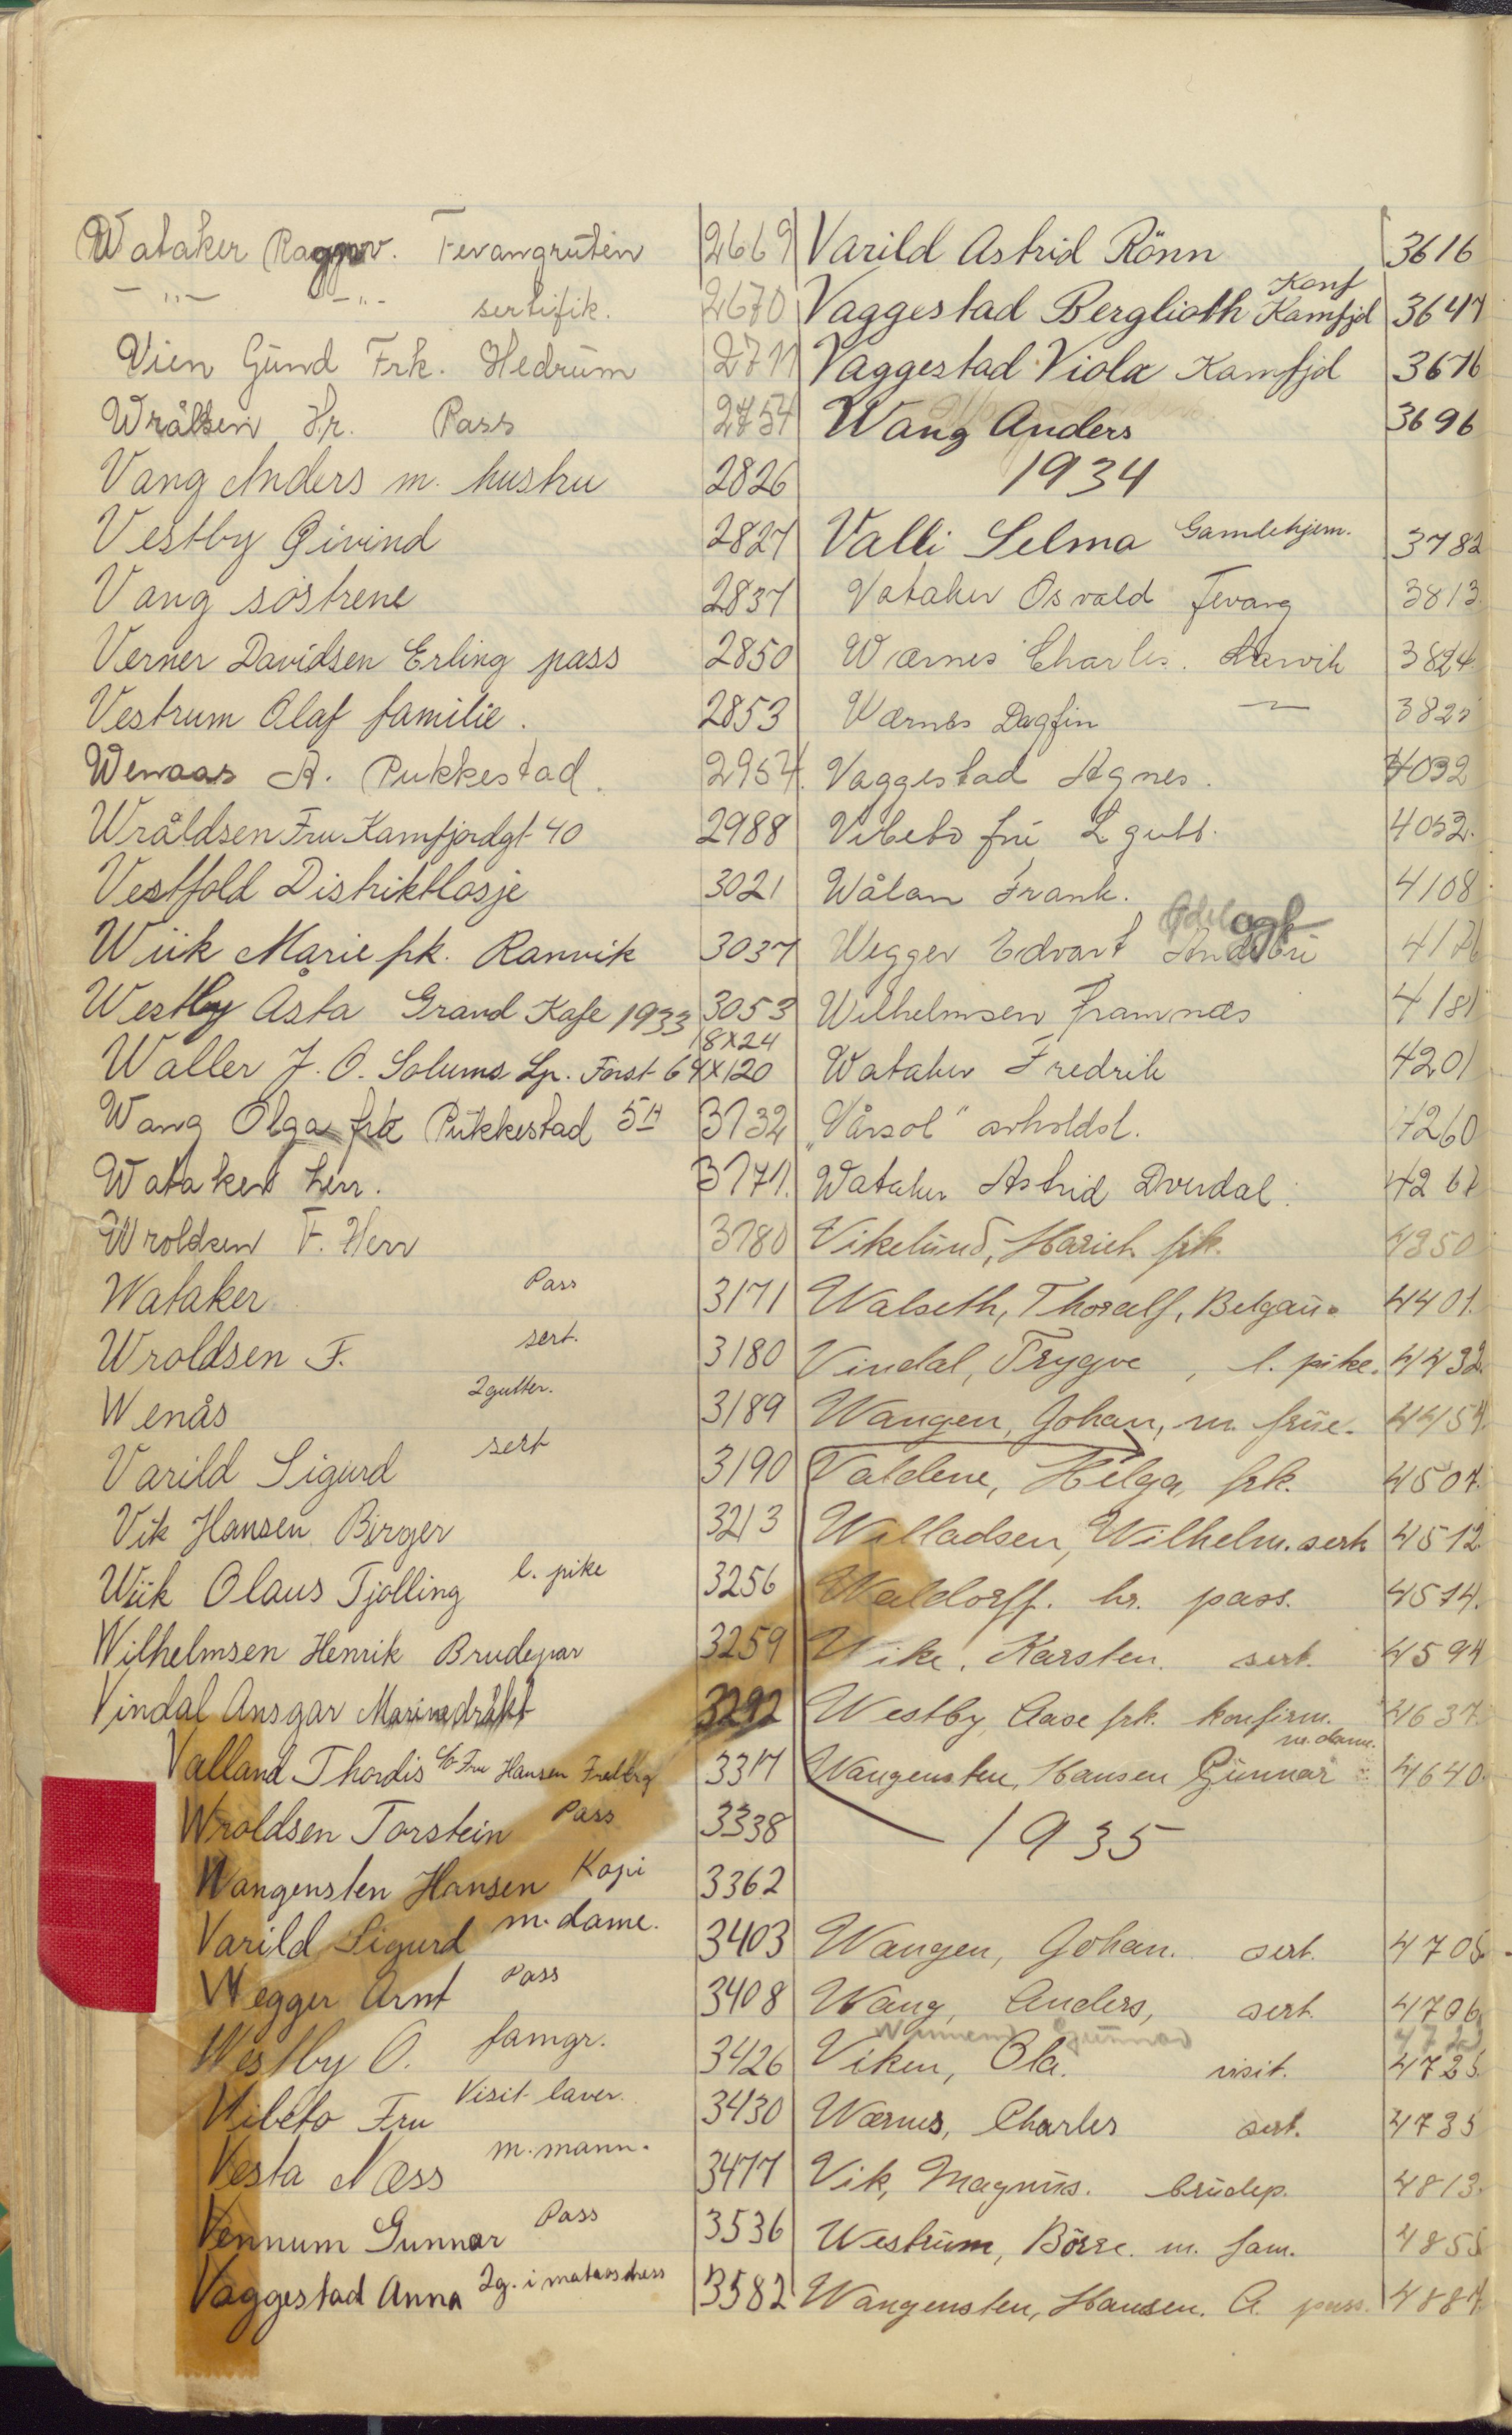 Wataker Raggnv. Fevangruten 2669
— " — — " — sertifik. 2670
Vien Gund Frk. Hedrum 2711
Wråldsen Hr. Pass 2754
Vang Anders m. hustru 2826
Vestby Øivind 2827
Vang søstrene 2837
Verner Davidsen Erling pass 2850
Vestrum Olaf familie. 2853
Wenaas A. Pukkestad. 2954.
Wråldsen Fru Kamfjordgt 40 2988
Vestfold Distriktlosje 3021
Wiik Marie frk. Ranvik 3037
Westby Åsta Grand Kafe 1933 3053
18x24
Waller J. O. Solums Lp. Forst 64x120
Wang Olga frk Pukkestad 5H 3132
Wataker herr. 3171.
Wroldsen F. Herr 3180
Wataker Pass 3171
Wroldsen F. sert. 3180
Wenås 2 gutter. 3189
Varild Sigurd sert 3190
Vik Hansen Birger 3213
Wiik Olaus Tjølling l. pike 3256
Wilhelmsen Henrik Brudepar 3259
Vindal Ansgar Marinedråkt 3292
Valland Thordis c/o Fru Hansen 3317
Wroldsen Torstein Pass 3338
Wangensten Hansen Kopi 3362
Varild Sigurd m. dame. 3403
Wegger Arnt Pass 3408
Westby O. famgr. 3426
Vibeto Fru Visit laver. 3430
Vesta Næss m. mann. 3477
Vennum Gunnar Pass 3536
Vaggestad Anna 2g. i matrosdress 3582
Varild Astrid Rönn 3616
Konf
Vaggestad Berglioth Kamfjd 3647
Vaggestad Viola Kamfjd 3676
Wang Anders 3696
1934
Valli Selma Gamlehjem. 3782
Vataker Osvald Fevang 3813
Wærnes Charles. Larvik 3824
Wærnes Dagfin — 3825
Vaggestad Agnes. 4032
Vibeto fru L gutt. 4052.
Wålan Frank. 4108
Wegger Edvart 4176
Wilhelmsen Framnæs 4181
Wataker Fredrik 4201
"Vårsol" avholdsl. 4260
Wataker Astrid Dverdal. 4267
Vikelund, Marich frk. 4350
Walseth, Thoralf, Belgau. 4401.
Vindal, Trygve, l. pike. 4432.
Wangen, Johan, m. frue. 4454.
Valdene, Helga, frk. 4507.
Willadsen, Wilhelm. sert 4512.
Waldorff. hr. pass. 4574.
Wike, Karsten. sert. 4594
Westby, Aase frk. konfirm. 4637.
m. dame.
Wangensten, Hansen Gunnar 4640.
1935
Wangen, Johan. sert. 4705.
Wang, Anders, sert. 4706
Gunnar
Viken, Ola. visit. 4725.
Wærnes, Charles sert. 4735
Vik, Magnus. brudep. 4813.
Westrum, Börre. m. fam. 4855
Wangensten, Hansen. A. pass. 4887.